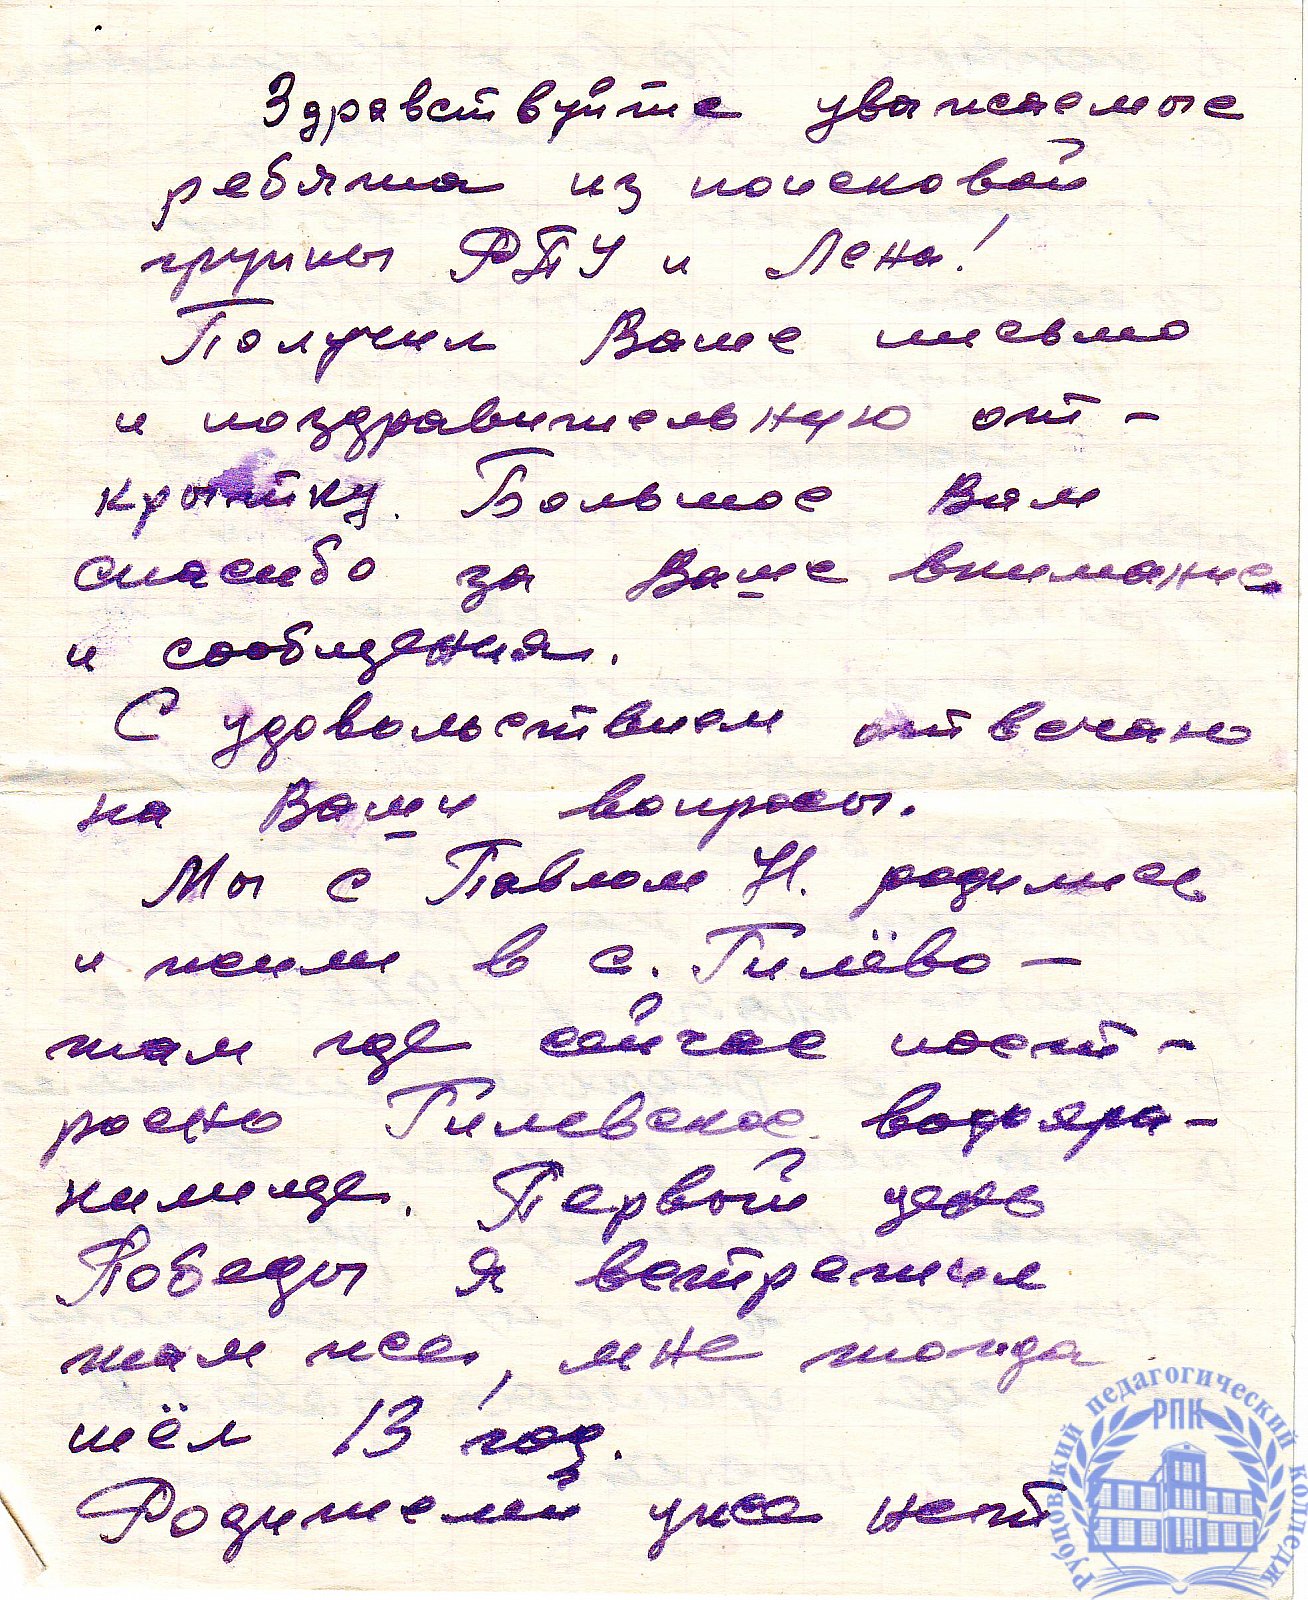 Здравствуйте уважаемые
ребята из поисковой
группы РПУ и Лена!
Получил Ваше письмо
и поздравительную от-
крытку. Большое Вам
спасибо за Ваше внимание
и сообщения.
С удовольствием отвечаю
на Ваши вопросы.
Мы с Павлом Н. родились
и жили в с. Гилёво -
там где сейчас пост-
роено Гилевское водохра-
нилище. Первый день
Победы я встретил
там же, мне тогда
шёл 13 год.
Родителей уже нет
Рубцовский педагогический колледж
РПК